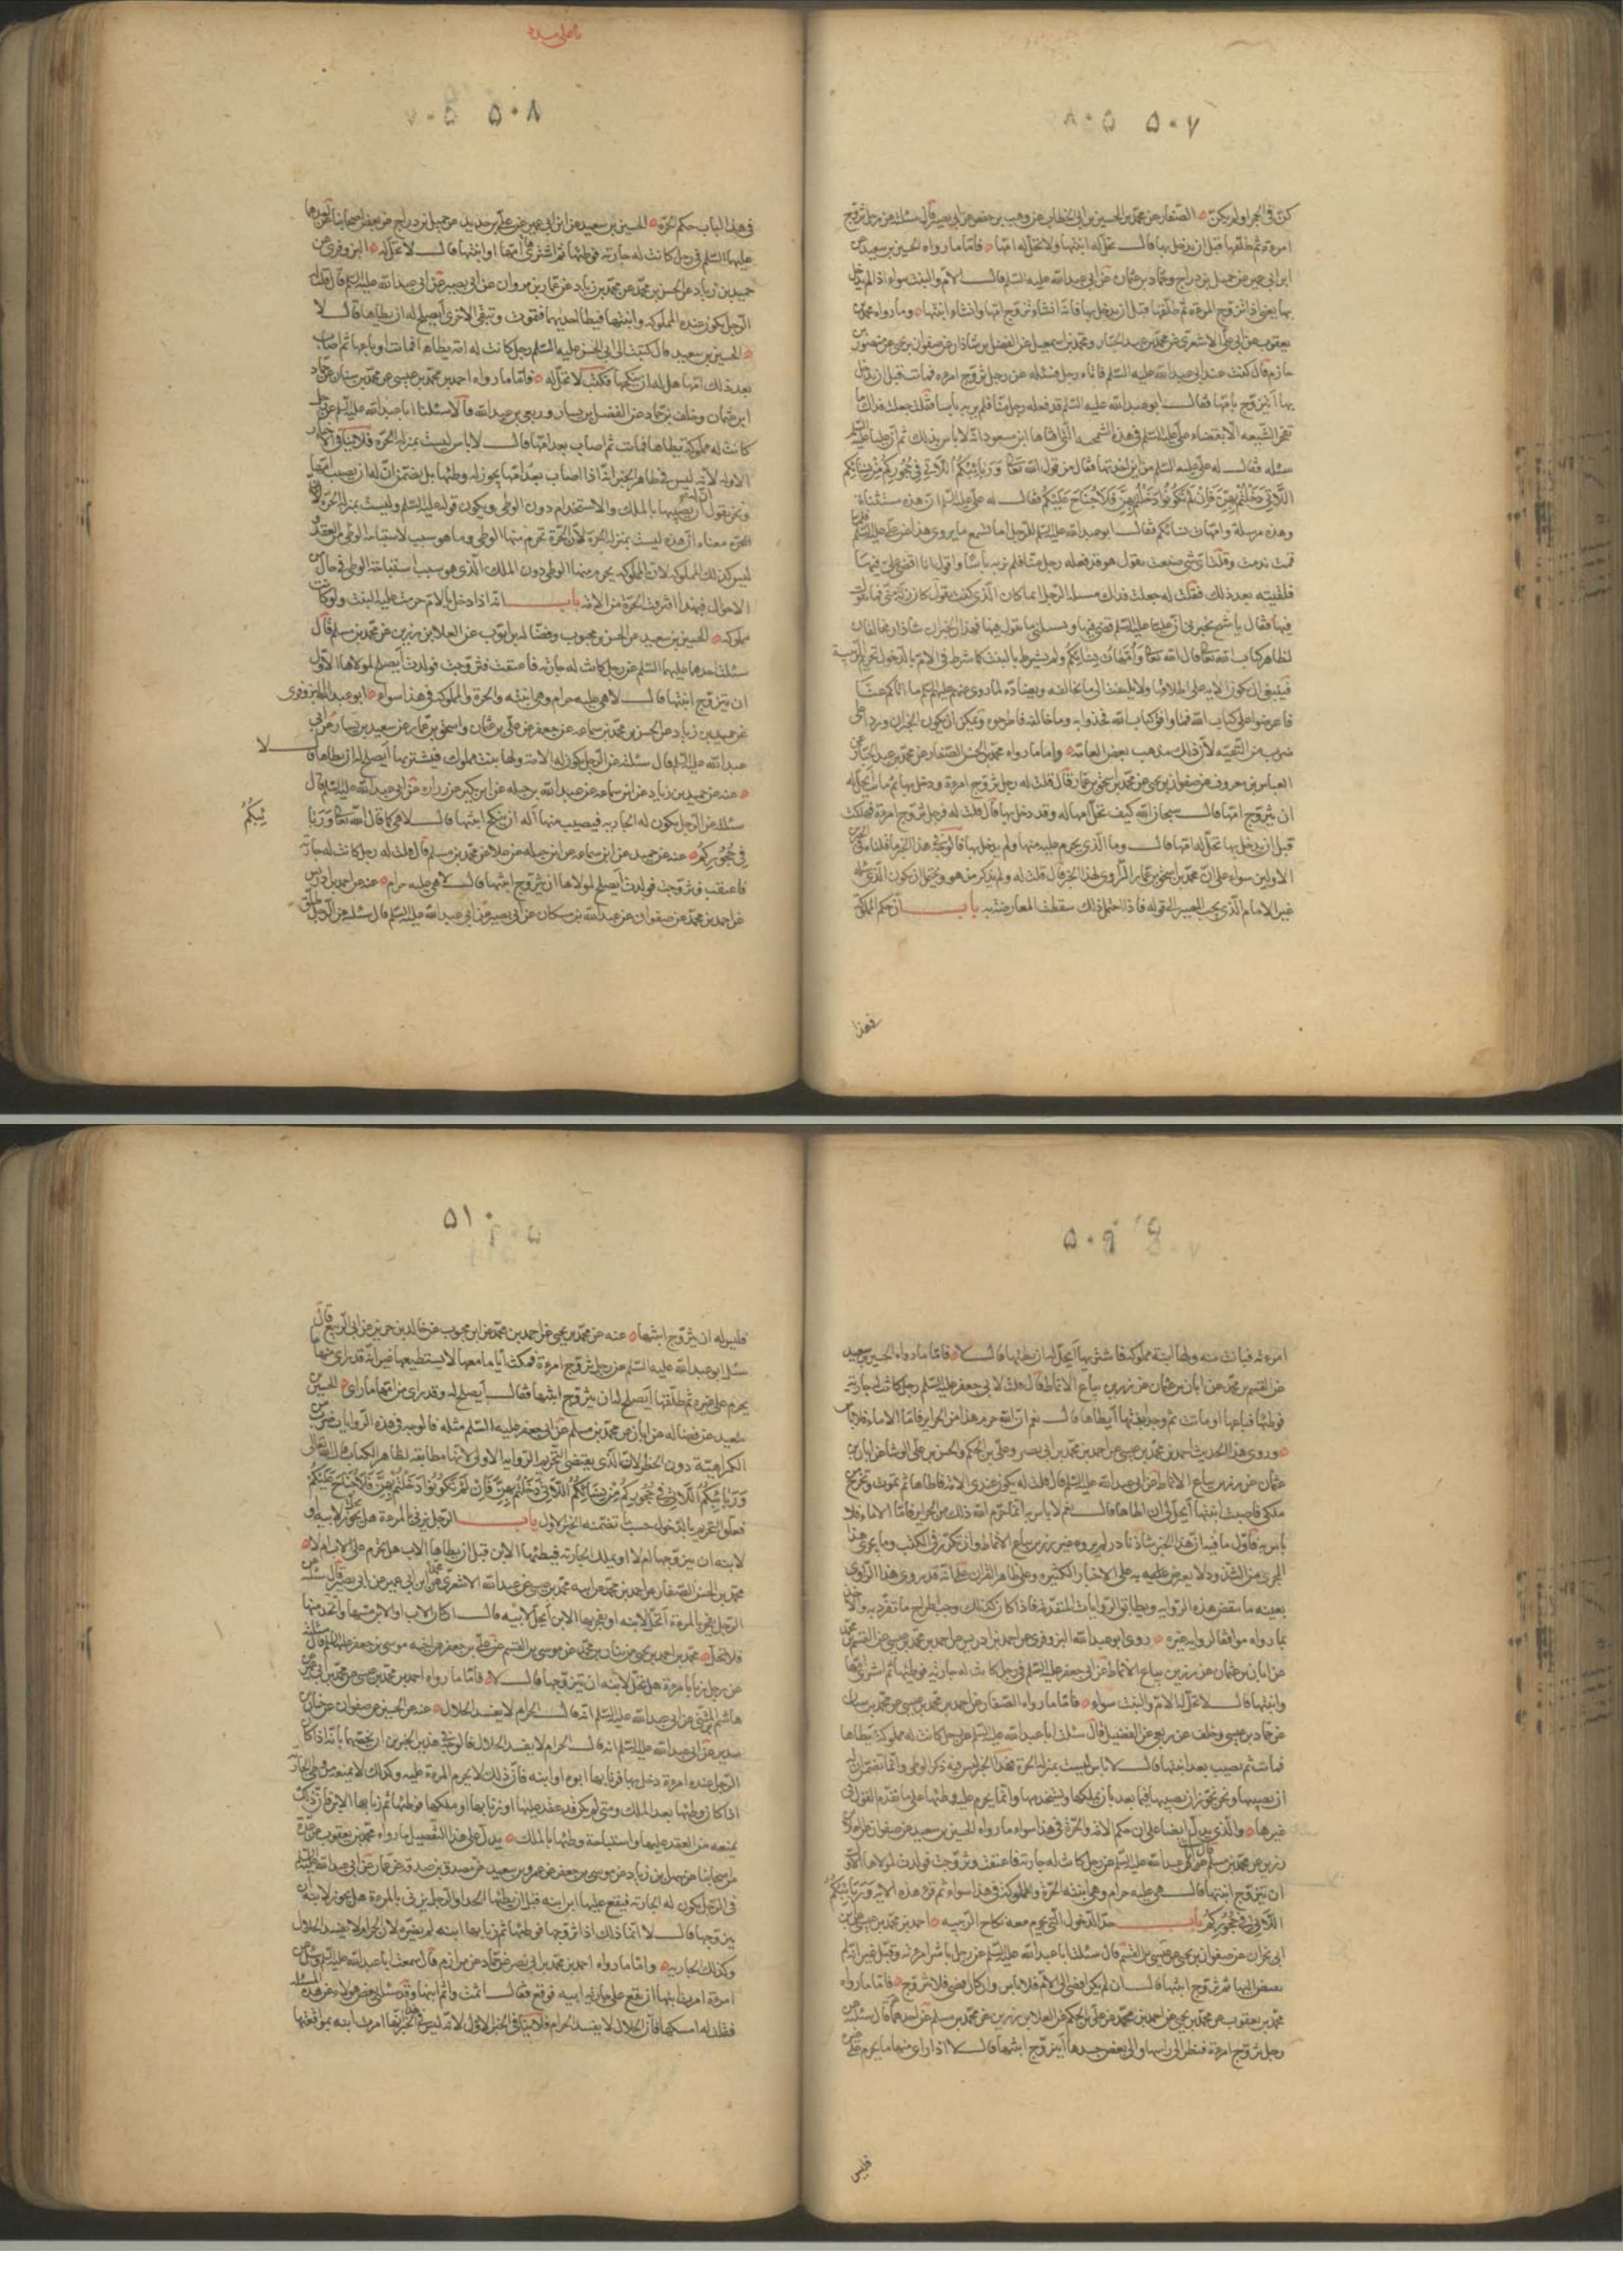 ۵۰۷
كنّ في الحجر او لم يكنّ الصفار عن محمد بن الحسين بن ابي الخطاب عن وهيب بن حفص عن ابي بصير قال سئلته عن رجل تزوج
امرءة ثم طلقها قبل ان يدخل بها فقال تحل له ابنتها ولا تحل له امها فاما ما رواه الحسين بن سعيد عن
ابن ابي عمير عن جميل بن دراج وحماد بن عثمان عن ابي عبد الله عليه السلم قال الام والبنت سواء اذا لم يدخل
بها يعني اذا تزوج المرءة ثم طلقها قبل ان يدخل بها فانه ان شاء تزوج امها وان شاء ابنتها وما رواه محمد بن
يعقوب عن ابي علي الاشعري عن محمد بن عبد الجبار ومحمد بن اسمعيل عن الفضل بن شاذان عن صفوان بن يحيى عن منصور بن
حازم قال كنت عند ابي عبد الله عليه السلم فاتاه رجل فسئله عن رجل تزوج امرءة فماتت قبل ان يدخل
بها ايتزوج بامها فقال ابو عبد الله عليه السلم قد فعله رجل منا فلم ير به باسا فقلت جعلت فداك ما
تفخر الشيعه الا بقضاء علي عليه السلم في هذه الشمخيه التي افتاها ابن مسعود انه لا باس بذلك ثم اتى عليا عليه السلم
سئله فقال له علي عليه السلم من اين اخذتها فقال من قول الله تعالى وَرَبَائِبُكُمُ اللَّاتِي فِي حُجُورِكُمْ مِنْ نِسَائِكُمُ
اللَّاتِي دَخَلْتُمْ بِهِنَّ فَاِنْ لَمْ تَكُونُوا دَخَلْتُمْ بِهِنَّ فَلَا جُنَاحَ عَلَيْكُمْ فقال له علي عليه السلم ان هذه مستثناة
وهذه مرسلة وامهات نسائكم فقال ابو عبد الله عليه السلم للرجل اما تسمع ما يروي هذا عن علي عليه السلم فلما
قمت ندمت وقلت اي شئ صنعت يقول هو قد فعله رجل منا فلم نر به باسا واقول انا قضى علي فيها
فلقيته بعد ذلك فقلت له جعلت فداك مسئلة الرجل انما كان الذي كنت تقول كان زلة مني فما تقول
فيها فقال يا شيخ تخبرني ان عليا عليه السلم قضى فيها وتسئلني ما تقول فيها فهذان الخبران شاذان مخالفان
لظاهر كتاب الله تعالى قال الله تعالى وَاُمَّهَاتُ نِسَائِكُمْ ولم يشترط بالبنت كما شرط في الام بالدخول تحريم الربيبة
فينبغي ان يكون الاية على اطلاقها ولا يلتفت الى ما يخالفه ويضاده لما روي عنهم عليهم السلم ما اتاكم عنا
فاعرضوا على كتاب الله فما وافق كتاب الله فخذوا به وما خالفه فاطرحوه ويمكن ان يكون الخبران وردا على
ضرب من التقيه لان ذلك مذهب بعض العامة واما ما رواه محمد بن الحسن الصفار عن محمد بن عبد الجبار عن
العباس بن معروف عن صفوان بن يحيى عن محمد بن اسحق بن عمار قال قلت له رجل تزوج امرءة ودخل بها ثم ماتت ايحل له
ان يتزوج امها قال سبحان الله كيف تحل له امها وقد دخل بها قال قلت له فرجل تزوج امرءة فهلكت
قبل ان يدخل بها تحل له امها قال وما الذي يحرم عليه منها ولم يدخل بها فالوجه في هذا الخبر ما قلناه في الخبرين
الاولين سواء على ان محمد بن اسحق بن عمار الراوي لهذا الخبر قال قلت له ولم يذكر من هو ويحتمل ان يكون الذي سئله
غير الامام الذي يجب المصير الى قوله فاذا احتمل ذلك سقطت المعارضة به باب ان حكم المملوكة
فهذا
۵۰۸
في هذا الباب حكم الحرّة الحسين بن سعيد عن ابن ابي عمير عن علي بن حديد عن جميل بن دراج عن بعض اصحابنا عن احدهما
عليهما السلم في رجل كانت له جارية فوطئها ثم اشترى امها او ابنتها قال لا تحل له البزوفري عن
حميد بن زياد عن الحسن بن محمد عن محمد بن زياد عن عمار بن مروان عن ابي بصير عن ابي عبد الله عليه السلم قال قلت له
الرجل يكون عنده المملوكه وابنتها فيطا احديهما فتموت وتبقى الاخرى ايصلح له ان يطاها قال لا
الحسين بن سعيد قال كتبت الى ابي الحسن عليه السلم رجل كانت له امة يطاها فماتت او باعها ثم اصاب
بعد ذلك امها هل له ان ينكحها فكتب لا تحل له فاما ما رواه احمد بن محمد بن عيسى عن محمد بن سنان عن حماد
ابن عثمان وخلف بن حماد عن الفضيل بن يسار وربعي بن عبد الله قالا سئلنا ابا عبد الله عليه السلم عن رجل
كانت له مملوكة يطاها فماتت ثم اصاب بعد امها قال لا باس ليست بمنزلة الحرّة فلا ينافي الاخبار
الاولة لانه ليس في ظاهر الخبر انه اذا اصاب بعد امها يجوز له وطئها بل تضمن ان له ان يصيب امها
ونحن نقول ان له ان يصيبها بالملك والاستخدام دون الوطي ويكون قوله عليه السلم وليست بمنزلة الحرة لان
الحرة معناه ان هذه ليست بمنزلة الحرة لان الحرة تحرم منها الوطي وما هو سبب لاستباحة الوطي من العقد
وليس كذلك المملوكه لان المملوكه يحرم منها الوطي دون الملك الذي هو سبب استباحة الوطي في حال من
الاحوال فبهذا افترقت الحرة من الامة باب انه اذا دخل بالام حرمت عليه البنت ولو كانت
مملوكه الحسين بن سعيد عن الحسن بن محبوب وفضالة بن ايوب عن العلا بن رزين عن محمد بن مسلم قال
سئلت احدهما عليهما السلم عن رجل كانت له جارية فاعتقت فتزوجت فولدت ايصلح لمولاها الاول
ان يتزوج ابنتها قال لا هي عليه حرام وهي ابنته والحرة والمملوكه في هذا سواء ابو عبد الله البزوفري
عن حميد بن زياد عن الحسن بن محمد بن سماعه عن جعفر عن علي بن عثمان واسحق بن عمار عن سعيد بن يسار عن ابي
عبد الله عليه السلم قال سئلته عن الرجل يكون له الامة ولها بنت مملوك فيشتريها ايصلح له ان يطاها قال لا
عنه عن حميد بن زياد عن ابن سماعه عن عبد الله بن جبله عن ابن بكير عن زرارة عن ابي عبد الله عليه السلم قال
سئلته عن الرجل يكون له الجاريه فيصيب منها اله ان ينكح ابنتها قال لا هي كما قال الله تعالى وَرَبَا
ئِبُكُمُ
فِي حُجُورِكُمْ عنه عن حميد عن ابن سماعه عن ابن جبله عن علا عن محمد بن مسلم قال قلت له رجل كانت له جارية
فاعتقت فتزوجت فولدت ايصلح لمولاها ان يتزوج ابنتها قال لا هي عليه حرام عنه عن احمد بن ادريس
عن احمد بن محمد عن صفوان عن عبد الله بن مسكان عن ابي بصير عن ابي عبد الله عليه السلم قال سئلته عن الرجل طلق
۵۰۹
امرءته فبانت منه ولها ابنة مملوكة فاشتريها ايحل له ان يطئها قال لا فاما ما رواه الحسين بن سعيد
عن القسم بن محمد عن ابان بن عثمان عن رزين بياع الانماط قال قلت لابي جعفر عليه السلم رجل كانت له جارية
فوطئها فباعها او ماتت ثم وجد ابنتها ايطاها قال نعم انما حرم الله هذا من الحراير فاما الاماء فلا باس
وروى هذا الحديث احمد بن محمد بن عيسى عن احمد بن محمد بن ابي نصر وعلي بن الحكم والحسن بن علي الوشا عن ابان بن
عثمان عن رزين بياع الانماط عن ابي عبد الله عليه السلم قال قلت له يكون عندي الامة فاطاها ثم تموت او تخرج
ملكي فاصيب ابنتها ايحل لي ان اطاها قال نعم لا باس به انما حرم الله ذلك من الحراير فاما الاماء فلا
باس به فاول ما فيه ان هذا الخبر شاذ نادر لم يروه غير رزين بياع الانماط وان تكرر في الكتب وما يجري هذا
المجرى من الشذوذ لا يعترض به على الاخبار الكثيره وعلى ظاهر القران على انه قد روى هذا الراوي
بعينه ما ينقض هذه الروايه ويطابق الروايات المتقدمة فاذا كان كذلك وجب اطراح ما تفرد به والاخذ
بما رواه موافقا لرواية غيره روى ابو عبد الله البزوفري عن احمد بن ادريس عن احمد بن محمد بن عيسى عن القسم بن محمد
عن ابان بن عثمان عن رزين بياع الانماط عن ابي جعفر عليه السلم في رجل كانت له جارية فوطئها ثم اشترى امها
وابنتها قال لا تحل له الام والبنت سواء فاما ما رواه الصفار عن احمد بن محمد بن عيسى عن محمد بن سنان
عن حماد بن عيسى وخلف عن ربعي عن الفضيل قال سئلت ابا عبد الله عليه السلم عن رجل كانت له مملوكة يطاها
فماتت ثم يصيب بعد ابنتها قال لا باس ليست بمنزلة الحرة فهذا الخبر ليس فيه ذكر الوطي وانما تضمن ان له
ان يصيبها ونحن نجوز ان يصيبها فيما بعد بان يملكها ويستخدمها وانما يحرم عليه وطئها على ما تقدم القول في
غيرها والذي يدل ايضا على ان حكم الامة والحرة في هذا سواء ما رواه الحسين بن سعيد عن صفوان عن العلا بن
رزين عن محمد بن مسلم عن ابي عبد الله عليه السلم عن رجل كانت له جارية فاعتقت وتزوجت فولدت لمولاها الاول
ان يتزوج ابنتها قال هي عليه حرام وهي ابنته الحرة والمملوكة في هذا سواء ثم قرء هذه الاية وَرَبَائِبُكُمُ
اللَّاتِي فِي حُجُورِكُمْ باب حدّ الدخول الذي يحرم معه نكاح الربيبه احمد بن محمد بن عيسى عن ابن
ابي نجران عن صفوان بن يحيى عن عيص بن القسم قال سئلت ابا عبد الله عليه السلم عن رجل باشر امرءته وقبل غير انه لم
يفض اليها ثم تزوج ابنتها قال ان لم يكن افضى الى الام فلا باس وان كان افضى فلا يتزوج فاما ما رواه
محمد بن يعقوب عن محمد بن يحيى عن احمد بن محمد عن علي بن الحكم عن العلا بن رزين عن محمد بن مسلم عن احدهما قال سئلته عن
رجل تزوج امرءة فنظر الى راسها والى بعض جسدها ايتزوج ابنتها قال لا اذا راى منها ما يحرم على غيره
فليس
۵۱۰
فليس له ان يتزوج ابنتها عنه عن محمد بن يحيى عن احمد بن محمد عن ابن محبوب عن خالد بن جرير عن ابي الربيع قال
سئل ابو عبد الله عليه السلم عن رجل تزوج امرءة فمكث اياما معها لا يستطيعها غير انه قد راى منها ما
يحرم على غيره ثم طلقها ايصلح له ان يتزوج ابنتها فقال ايصلح له وقد راى من امها ما راى الحسين بن
سعيد عن فضالة عن ابان عن محمد بن مسلم عن ابي جعفر عليه السلم مثله فالوجه في هذه الروايات ضرب من
الكراهية دون الحظر لان الذي يقتضي التحريم الرواية الاولى لانها مطابقة لظاهر الكتاب قال الله تعالى
وَرَبَائِبُكُمُ اللَّاتِي فِي حُجُورِكُمْ مِنْ نِسَائِكُمُ اللَّاتِي دَخَلْتُمْ بِهِنَّ فَاِنْ لَمْ تَكُونُوا دَخَلْتُمْ بِهِنَّ فَلَا جُنَاحَ عَلَيْكُمْ
فعلق التحريم بالدخول حسب ما تضمنه الخبر الاول باب الرجل يزني بالمرءة هل يجوز لابيه او
لابنه ان يتزوجها ام لا او يملك الجارية فيطئها الابن قبل ان يطاها الاب هل تحرم على الاب ام لا
محمد بن الحسن الصفار عن احمد بن محمد عن ابيه محمد بن عيسى عن عبد الله الاشعري عن محمد بن ابي عمير عن ابي بصير قال سئلته عن
الرجل يفجر بالمرءة اتحل لابنه او يفجر بها الابن اتحل لابيه قال ان كان الاب او الابن مسها واخذ منها
فلا تحل محمد بن احمد بن يحيى عن بنان بن محمد عن موسى بن القسم عن علي بن جعفر عن اخيه موسى بن جعفر عليهما السلم قال سئلته
عن رجل زنا بامرءة هل تحل لابنه ان يتزوجها قال لا فاما ما رواه احمد بن محمد بن عيسى عن محمد بن ابي عمير عن
هاشم بن المثنى عن ابي عبد الله عليه السلم انه قال الحرام لا يفسد الحلال عنه عن الحسين عن صفوان عن حنان بن
سدير عن ابي عبد الله عليه السلم انه قال الحرام لا يفسد الحلال فالوجه في هذين الخبرين ان نخصهما بانه اذا كان
الرجل عنده امرءة دخل بها فزنا بها ابوه او ابنه فان ذلك لا يحرم المرءة عليه وكذلك لا يمنعه من وطي الجارية
اذا كان وطئها بعد الملك ومتى لم يكن قد عقد عليها او زنا بها او ملكها فوطئها ثم زنا بها الابن فان ذلك
يمنعه من العقد عليها واستباحة وطئها بالملك يدل على هذا التفصيل ما رواه محمد بن يعقوب عن عدة
من اصحابنا عن سهل بن زياد عن موسى بن جعفر عن عمرو بن سعيد عن مصدق بن صدقة عن عمار عن ابي عبد الله عليه السلم
في الرجل يكون له الجارية فيقع عليها ابن ابنه قبل ان يطئها الجد او الرجل يزني بالمرءة هل يجوز لابنه ان
يتزوجها قال لا انما ذلك اذا تزوجها فوطئها ثم زنا بها ابنه لم يضره لان الحرام لا يفسد الحلال
وكذلك الجاريه واما ما رواه احمد بن محمد بن ابي نصر عن حماد عن مرازم قال سمعت ابا عبد الله عليه السلم وسئل عن
امرءة امرت ابنها ان يقع على جارية ابيه فوقع فقال اثمت واثم ابنها وقد سئلني بعض هولاء عن هذه المسئلة
فقلت له امسكها فان الحلال لا يفسده الحرام فلا ينافي الخبر الاول لانه ليس في الخبر انها امرت ابنه بمواقعتها